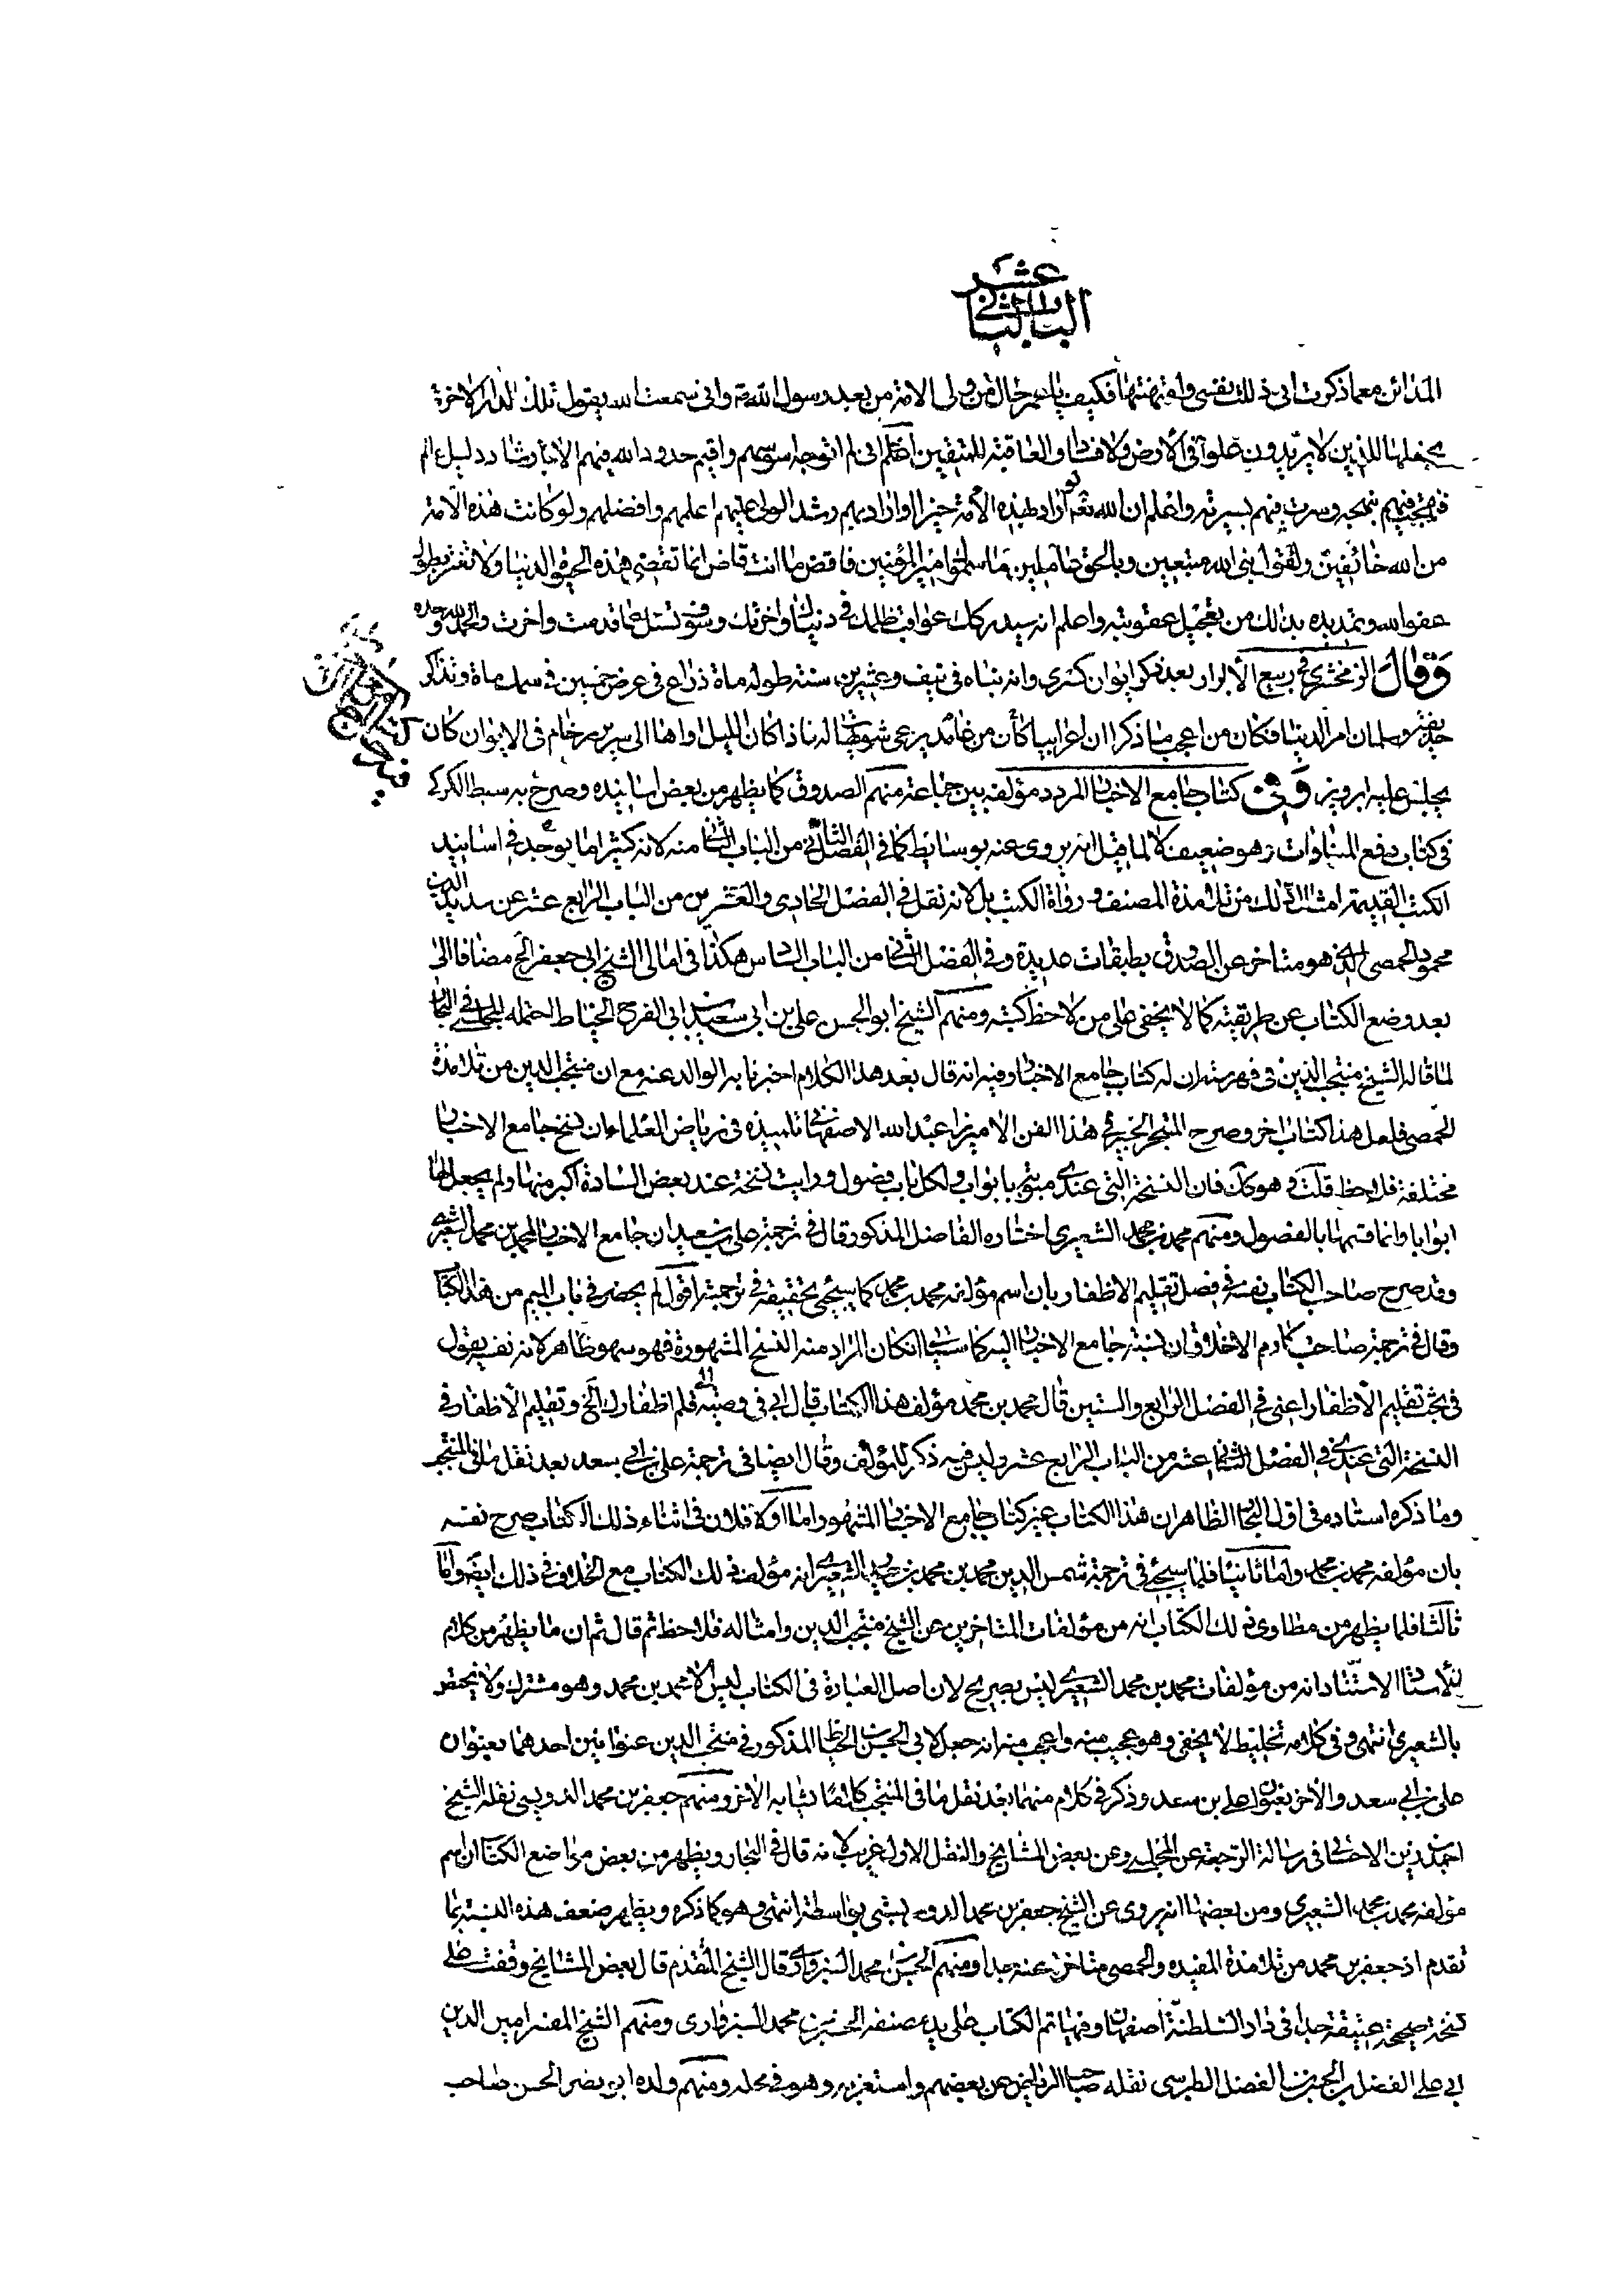 الباب الثاني عشر
المدائن مع ما ذكرت اني ذللت نفسي واتهنتها فكيف يا اسم حال من ولى الامة من بعد رسول الله ص وانى سمعت الله يقول تلك الدار الاخرة
نجعلها للذين لا يريدون علوا فى الأرض ولا فسادا والعاقبة للمتقين اعلم انى لم اتوجه اسوسهم واقيم حدود الله فيهم الا بارشاد دليل عالم
فنهجت فيهم بنهجه وسرت فيهم بسيرته واعلم ان الله تعالى لو اراد بهذه الأمة خيرا او اراد بهم رشدا لولى عليهم اعلمهم وافضلهم ولو كانت هذه الامة
من الله خائفين ولقول نبى الله متبعين وبالحق عاملين ما سموك امير المؤمنين فاقض ما انت قاض انما تقضى هذه الحيوة الدنيا ولا تغتر بطول
عفو الله وتمديده بذلك من تعجيل عقوبته واعلم انه سيدركك عواقب ظلمك فى دنياك واخرتك وسوف تسئل عما قدمت واخرت والحمد لله وحده
وقال الزمخشرى فى ربيع الأبرار بعد ذكر ايوان كسرى وانه بناه فى نيف وعشرين سنة طوله مأة ذراع فى عرض خمسين فى سمك مأة وتذاكر
حذيفة وسلمان امر الدنيا فكان من اعجب ما ذكرا ان اعرابيا كان من غامد يرعى شويهات له فاذا كان الليل اواها الى سرير رخام فى الايوان كان
يجلس عليه ابرويز وفى كتاب جامع الاخبار المردد مؤلفه بين جماعة منهم الصدوق كما يظهر من بعض اسانيده وصرح به سبط الكركى
فى كتاب دفع المناوات وهو ضعيف لا لما قيل انه يروى عنه بوسائط كما فى الفصل الثانى من الباب الثانى منه لانه كثيرا ما يوجد فى اسانيد
الكتب القديمة امثال ذلك من تلامذة المصنف ورواة الكتب بل لانه نقل فى الفصل الحادى والعشرين من الباب الرابع عشر عن سديد الدين
محمود الحمصى الخ هو متاخر عن الصدوق بطبقات عديدة وفى الفصل الثانى من الباب السادس هكذا فى امالى الشيخ ابى جعفر الخ مضافا الى
بعد وضع الكتاب عن طريقته كما لا يخفى على من لاحظ كتبه ومنهم الشيخ ابو الحسن على بن ابى سعيد ابى الفرج الخياط احتمله المجلسى فى البحار
لما قاله الشيخ منتجب الدين فى فهرسته ان له كتاب جامع الاخبار وفيه انه قال بعد هذا الكلام اخبرنا به الوالد عنه مع ان منتجب الدين من تلامذة
الحمصى فلعل هذا كتاب اخر وصرح المتبحر الخبير فى هذا الفن الاميرزا عبد الله الاصفهانى تلميذه فى رياض العلماء ان نسخ جامع الاخبار
مختلفة فلاحظ قلت هو كك فان النسخة التى عندى مبوبة بابواب ولكل باب فصول ورايت نسخة عند بعض السادة اكبر منها ولم يجعل لها
ابوابا وانما قسمها بالفصول ومنهم محمد بن محمد الشعيرى اختاره الفاضل المذكور قال فى ترجمة على بن سعيد ان جامع الاخبار لمحمد بن محمد الشعيرى
وقد صرح صاحب الكتاب نفسه فى فصل تقليم الاظفار بان اسم مؤلفه محمد بن محمد كما سيجئ تحقيقه فى ترجمته اقول لم يحضر فى باب الميم من هذا الكتاب
وقال فى ترجمة صاحب مكارم الاخلاق ان نسبة جامع الاخبار اليه كما سيأتى ان كان المراد منه النسخ المشهورة فهو سهو ظاهر لانه نفسه يقول
فى بحث تقليم الأظفار اعنى فى الفصل الرابع والستين قال محمد بن محمد مؤلف هذا الكتاب قال ابى فى وصيته الى قلم اظفارك الخ وتقليم الأظفار فى
النسخة التى عندى فى الفصل الثانى عشر من الباب الرابع عشر وليس فيه ذكر للمؤلف وقال ايضا فى ترجمة على بن ابى سعد بعد نقل ما فى المنتجب
وما ذكره استاده فى اول البحار الظاهر ان هذا الكتاب غير كتاب جامع الاخبار المشهور اما اولا فلان فى اثناء ذلك الكتاب صرح نفسه
بان مؤلفه محمد بن محمد واما ثانيا فلما سيجئ فى ترجمة شمس الدين محمد بن محمد بن حيدر الشعيرى انه مؤلف ذلك الكتاب مع الخلاف فى ذلك ايضا واما
ثالثا فلما يظهر من مطاوى ذلك الكتاب انه من مؤلفات المتاخرين عن الشيخ منتجب الدين وامثاله فلاحظ ثم قال ثم ان ما يظهر من كلام
الأستاد الاستناد انه من مؤلفات محمد بن محمد الشعيرى ليس بصريح لان اصل العبارة فى الكتاب ليس الا محمد بن محمد وهو مشترك ولا يختص
بالشعيرى انتهى وفى كلامه تخليط لا يخفى وهو عجيب منه واعجب منه انه جعل لابى الحسن الخياط المذكور فى منتجب الدين عنوانين احدهما بعنوان
على بن ابى سعد والاخر بعنوان على بن سعد وذكر فى كلام منهما بعد نقل ما فى المنتجب كلاما يشابه الأخر ومنهم جعفر بن محمد الدوريستى نقله الشيخ
احمد بن زين الاحسائى فى رسالة الرجعة عن المجلسى وعن بعض المشايخ والنقل الاول غريب لانه قال فى البحار ويظهر من بعض مواضع الكتاب ان اسم
مؤلفه محمد بن محمد الشعيرى ومن بعضها انه يروى عن الشيخ جعفر بن محمد الدوريستى بواسطة انتهى وهو كما ذكره ويظهر ضعف هذه النسبة بما
تقدم اذ جعفر بن محمد من تلامذة المفيد والحمصى متاخر عنه جدا ومنهم الحسن بن محمد السبزوارى قال الشيخ المقدم قال بعض المشايخ وقفت على
نسخة صحيحة عتيقة جدا فى دار السلطنة اصفهان وفيها تم الكتاب على يد مصنفه الحسن بن محمد السبزوارى ومنهم الشيخ المفسر امين الدين
ابى على الفضل بن الحسن بن الفضل الطبرسى نقله صاحب الرياض عن بعضهم واستغربه وهو فى محله ومنهم ولده ابو نصر الحسن صاحب